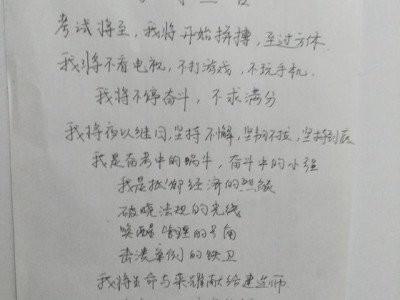 考试将至，我将开始拼搏，至过方休。
我将不看电视，不打游戏，不玩手机.
我将不停奋斗，不求满分
我将夜以继日，坚持不懈，坚韧不拔，坚持到底
我是备考中的蜗牛，奋斗中的小强
我是抵御经济的烈焰
破晓法规的光线
唤醒管理的号角
击溃案例的铁卫
我将生命与荣耀献给建造师